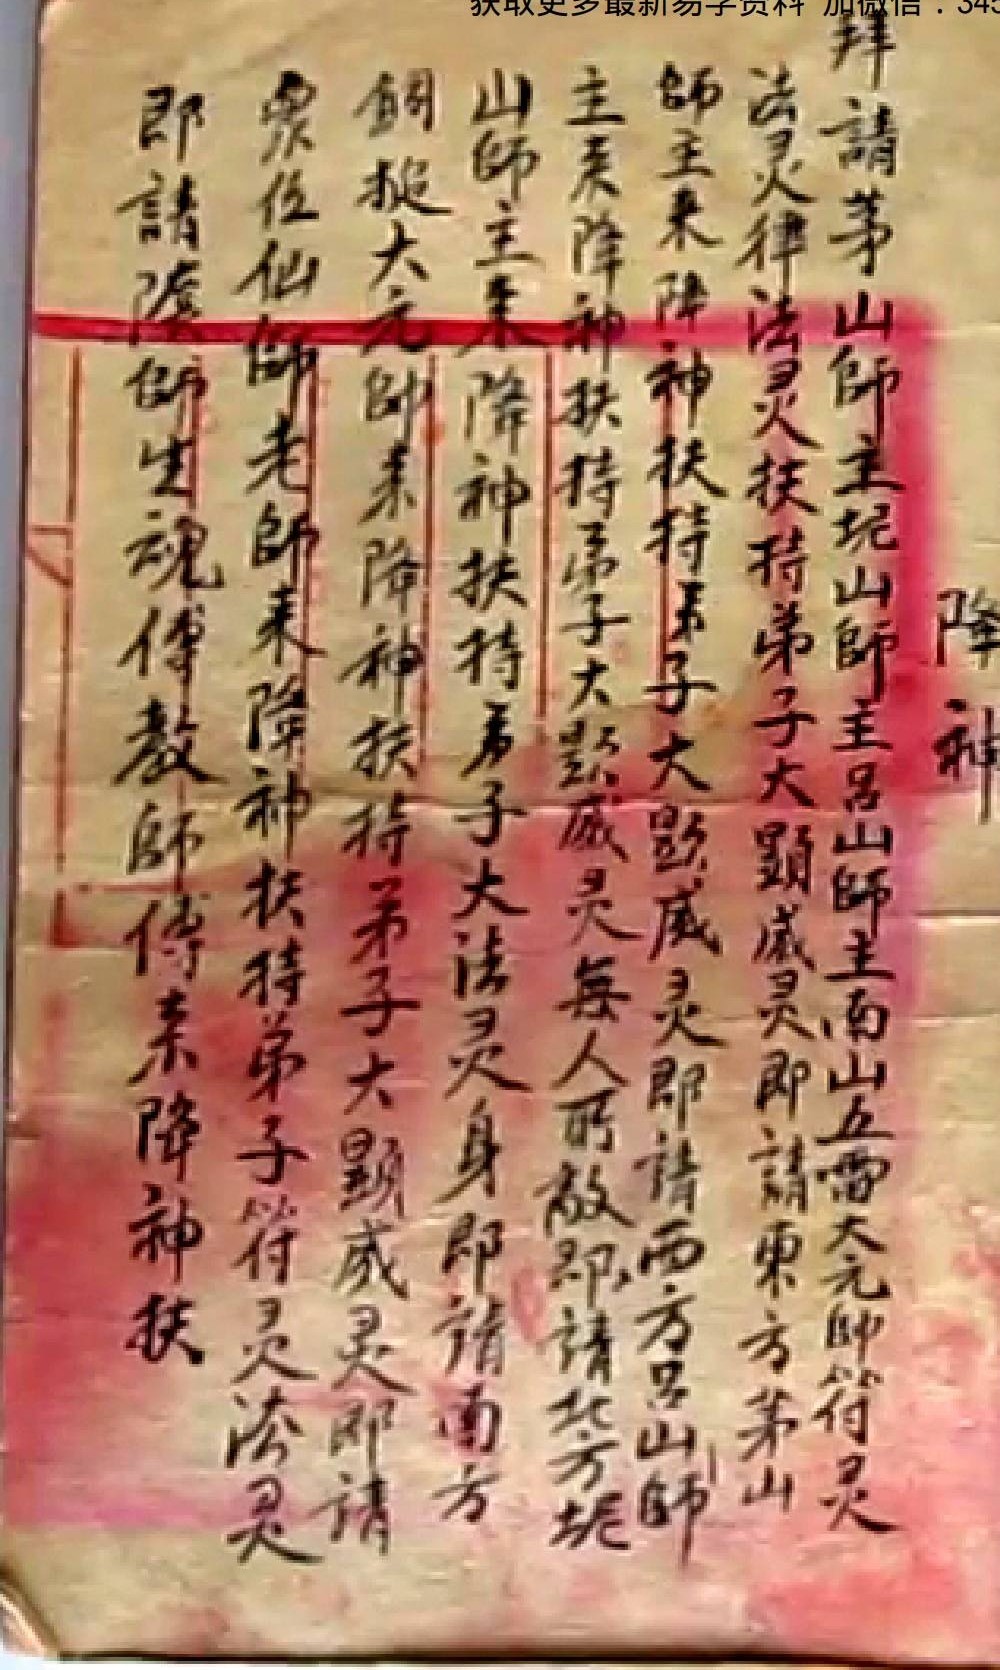 获取更多最新易学资料 加微信：345
降神
拜請茅山師主坭山師主呂山師主南山五雷大元帥符灵
法灵律法灵扶持弟子大顕威灵即請東方茅山
師主来降神扶持弟子大显威灵即请西方呂山師
主来降神扶持弟子大显威灵無人所敵即請北方坭
山師主来降神扶持弟子大法灵身即請南方
銅搥大元帥来降神扶持弟子大顕威灵即請
衆位仙師老師来降神扶持弟子符灵法灵
即請陰師生魂傅教師傅来降神扶